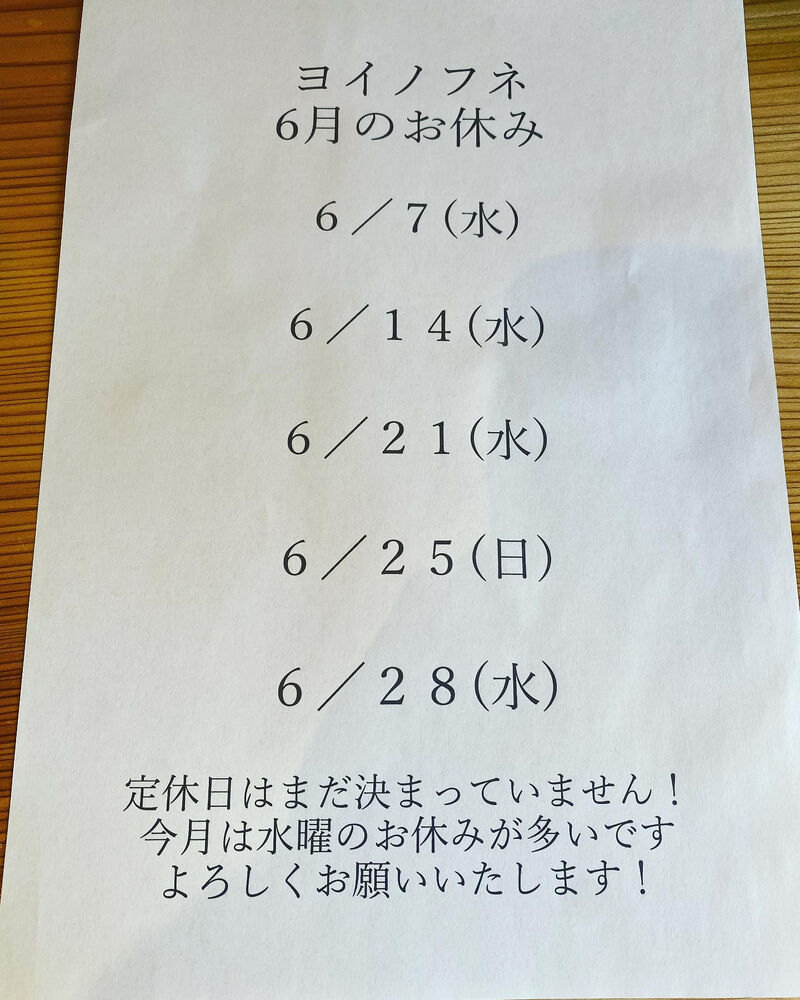 ヨイノフネ
6月のお休み
６／７(水)
６／１４(水)
６／２１(水)
６／２５(日)
６／２８(水)
定休日はまだ決まっていません！
今月は水曜のお休みが多いです
よろしくお願いいたします！